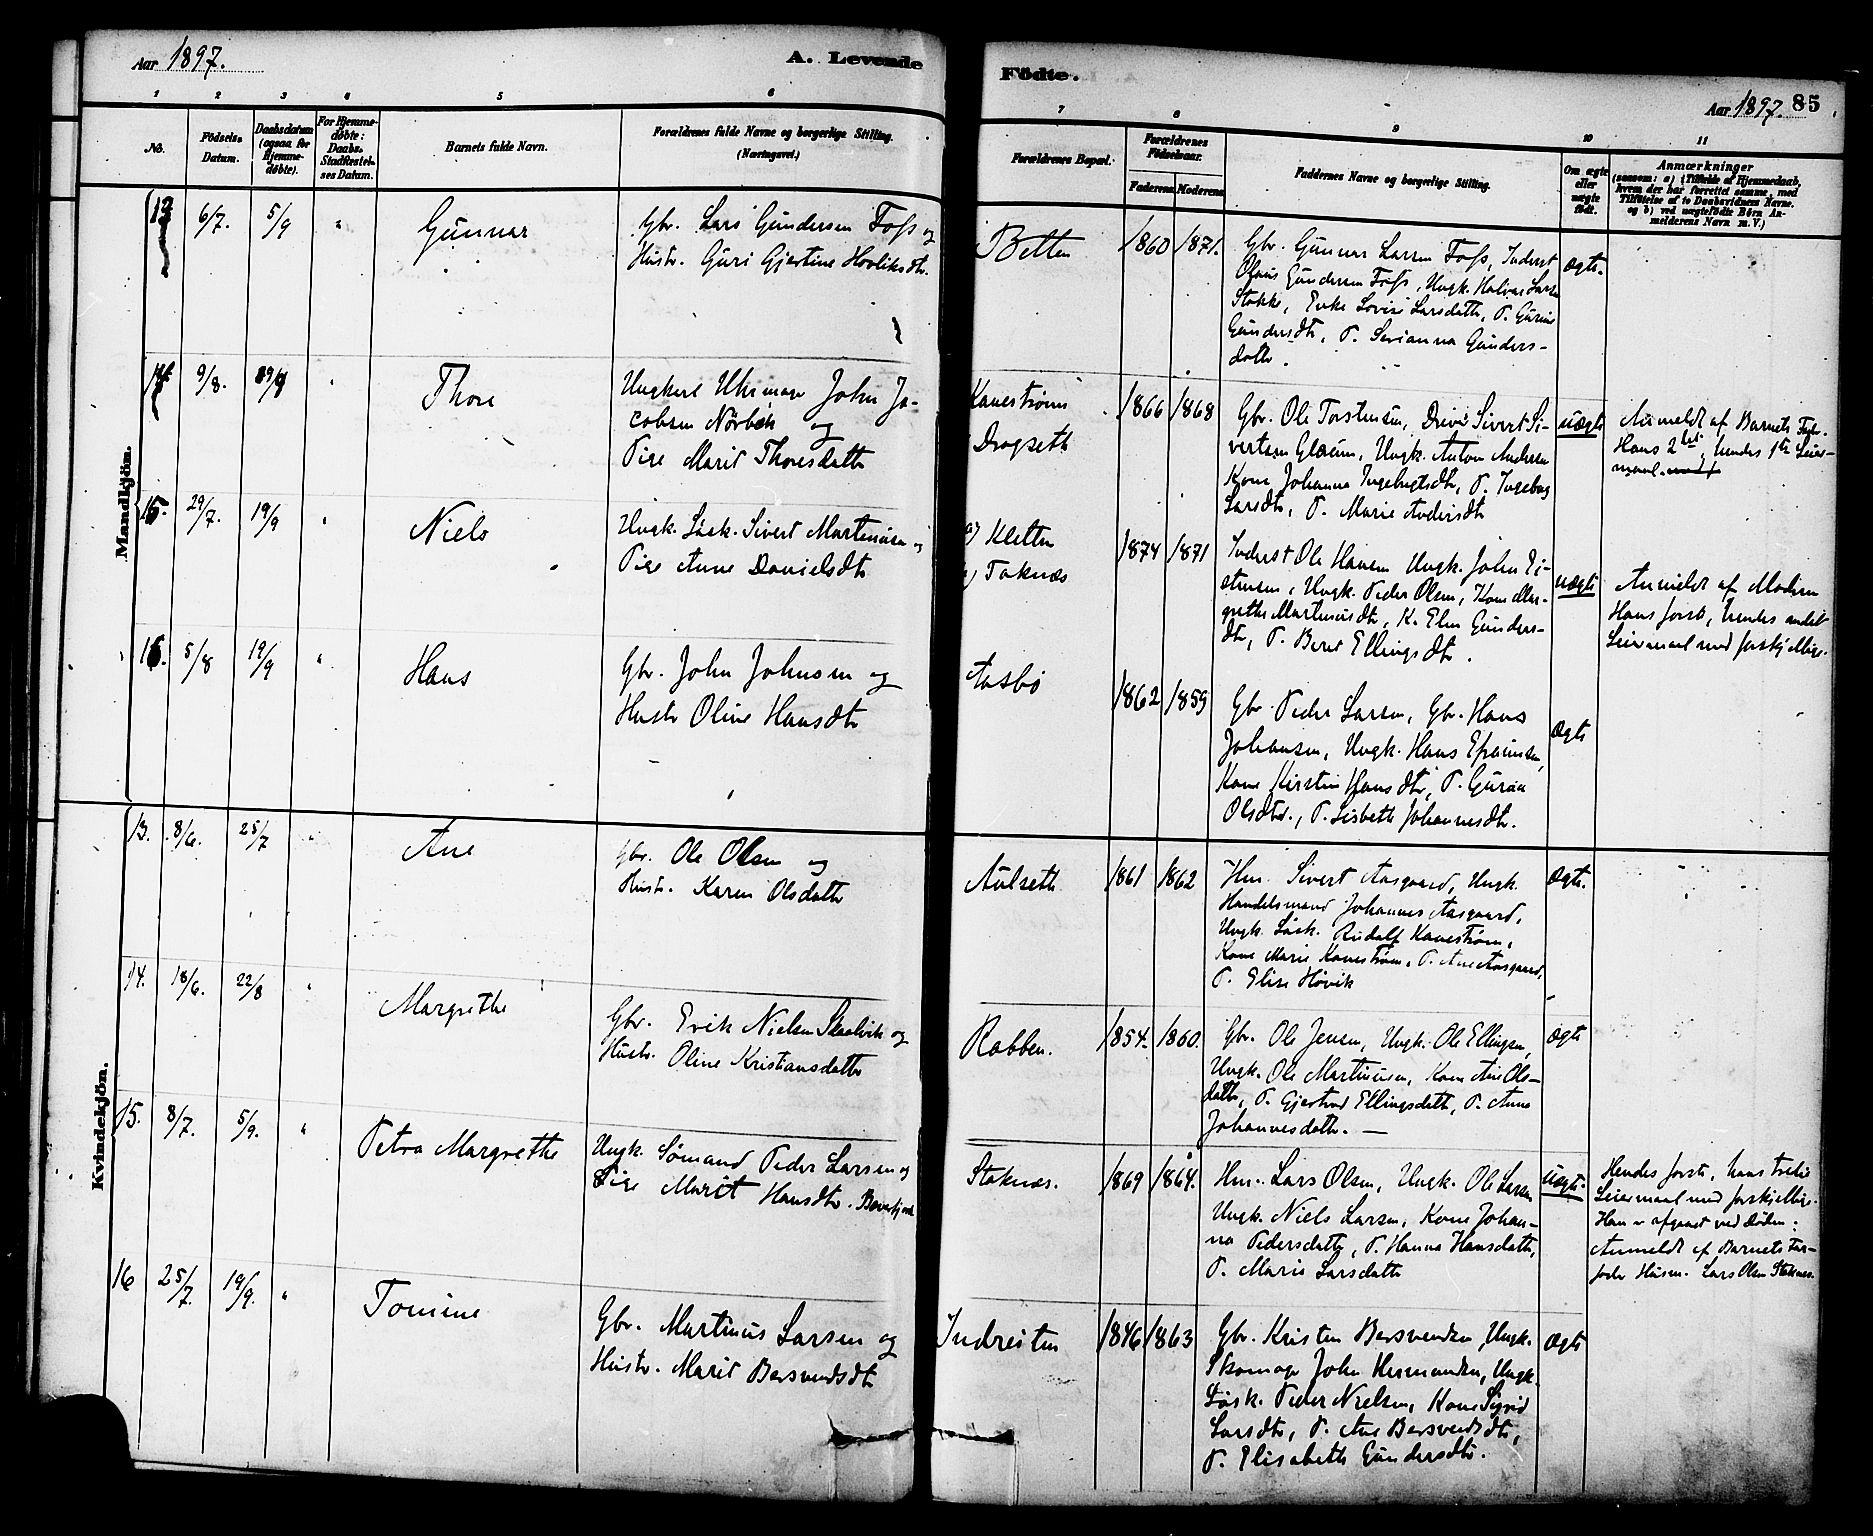 Aar 1897.
A. Levende
Födte.
Aar 1897.
85
1 2 3 4 5 6 7 8 9 10 11
No.
Födsels-
Datum.
Daabsdatum
(ogsaa for
Hjemme-
døbte).
For Hjemme-
døbte:
Daabs-
Stadfæstel-
ses Datum.
Barnets fulde Navn.
Forældrenes fulde Navne og borgerlige Stilling.
(Næringsvei.)
Forældrenes Bopæl.
Forældrenes
Födselsaar.
Faderens Moderens
Faddernes Navne og borgerlige Stilling.
Om ægte
eller
uægte
født.
Anmærkninger
(saasom: a) i Tilfælde af Hjemmedaab,
hvem der har forrettet samme, med
Tilföielse af to Daabsvidners Navne.
og b) ved uægtefödte Börn An-
melderens Navn m. V.)
Mandkjön.
13 6/7. 5/9 " Gunnar
Gbr. Lars Gundersen Foss og
Hustr. Guri Gjertine Hovliksdtr.
Betten
1860 1871.
Gbr. Gunnar Larsen Foss, Inderst
Olaus Gundersen Foss, Ungk. Halvar Larsen
Stokke, Enke Lovise Larsdattr, P. Gurine
Gundersdtr, P. Serianna Gunders-
dattr.
Ægte.
14 9/8. Thore
Ungkarl Uhrmager John Ja-
cobsen Nörbek og
Pige Marit Thoresdattr
Kanestrøm
Dragseth
1866 1868
Gbr. Ole Torstensen, Sivert Si-
vertsen Glærum, Ungk. Anton Andersen
Kone Johanna Ingebrigtsdtr, P. Ingeborg
Larsdtr, P. Marie Andersdtr
uægte
Anmeldt af Barnets Fader.
Hans 2det, hendes 1ste Leier-
maal.
15. 29/7. 19/9 " Niels
Ungk. Løsk. Sivert Martinusen og
Pige Anne Danielsdtr
a) Kletten
b) Taknæs
1874 1871
Inderst Ole Hansen Ungk. John Ei-
stensen, Ungk. Peder Olsen, Kone Mar-
grethe Martinusdtr, K. Elen Gunders-
dtr, P. Beret Ellingsdtr.
uægte
Anmeldt af Moderen
Hans første, hendes andet
Leiermaal med forskjellige.
16. 5/8 19/9 " Hans
Gbr. John Johnsen og
Hustr Oline Hansdtr
Aasbø
1862 1859
Gbr. Peder Larsen, Gbr. Hans
Johansen, Ungk. Hans Efraimsen,
Kone Kirstin Hansdtr, P. Guroa
Olsdtr., P. Lisbeth Johannesdtr.
Ægte
Kvindekjön.
13. 8/6. 25/7 " Ane
Gbr. Ole Olsen og
Hustr. Karen Olsdattr
Aulseth
1861 1862
Hm. Sivert Aasgaard, Ungk.
Handelsmand Johannes Aasgaard,
Ungk. Løsk. Rudolf Kanestrøm,
Kone Marie Kanestrøm, P. Ane Aasgaard,
P. Elise Høvik
Ægte.
14. 18/6. 22/8 " Margrethe
Gbr. Erik Nielsen Skaalvik og
Hustr. Oline Kristiansdattr
Rabben.
1854. 1860.
Gbr. Ole Jensen, Ungk. Ole Ellingsen,
Ungk. Ole Martinusen, Kone Ane Ols-
dattr, P. Gjertrud Ellingsdattr, P. Anne
Johannesdattr. —
Ægte
15. 8/7. 5/9. " Petra Margrethe
Ungk. Sømand Peder Larsen og
Pige Marit Hansdtr. Bæverfjord
Staknæs.
1869 1864.
Hm. Lars Olsen, Ungk. Ole Larsen
Ungk. Niels Larsen, Kone Johan-
na Pedersdattr, P. Hanna Hansdattr,
P. Maria Larsdattr
Uægte.
Hendes første, hans tredie
Leiermaal med forskjellige.
Han er afgaaet ved Døden.
Anmeldt af Barnets Far-
fader Husm. Lars Olsen Staknæs.
16 25/7. 19/9. " Tomine
Gbr. Martinus Larsen og
Hustr. Marit Bersvendsdtr
Indreiten
1846 1863
Gbr. Kristen Bersvendsen, Ungk.
Skomager John Hermandsen, Ungk.
Løsk. Peder Nielsen, Kone Sigrid
Larsdtr, P. Ane Bersvendsdtr,
P. Elisabeth Gundersdtr.
Ægte